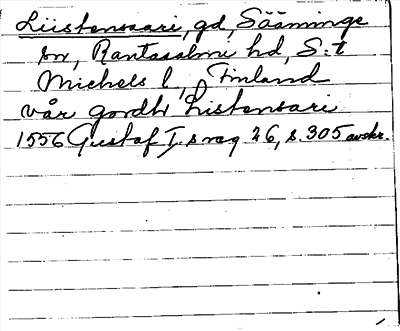 Liistensaari, gd, Sääminge
sn, Rantasalmi hd, S:t
Michels l, Finland
vår gordh Listensari
1556 Gustaf I:s reg 26, s. 305 avskr.